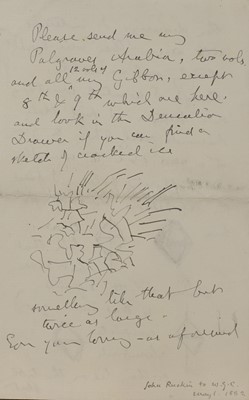 Please send me my
Palgraves Arabia, two vols.
and all my Gibbon, except
8th & 9th which are here.
and look in the
Drawer if you can find a
sketch of cracked ice
something like that but
twice as large -
your loving - as aforesaid
John Ruskin to